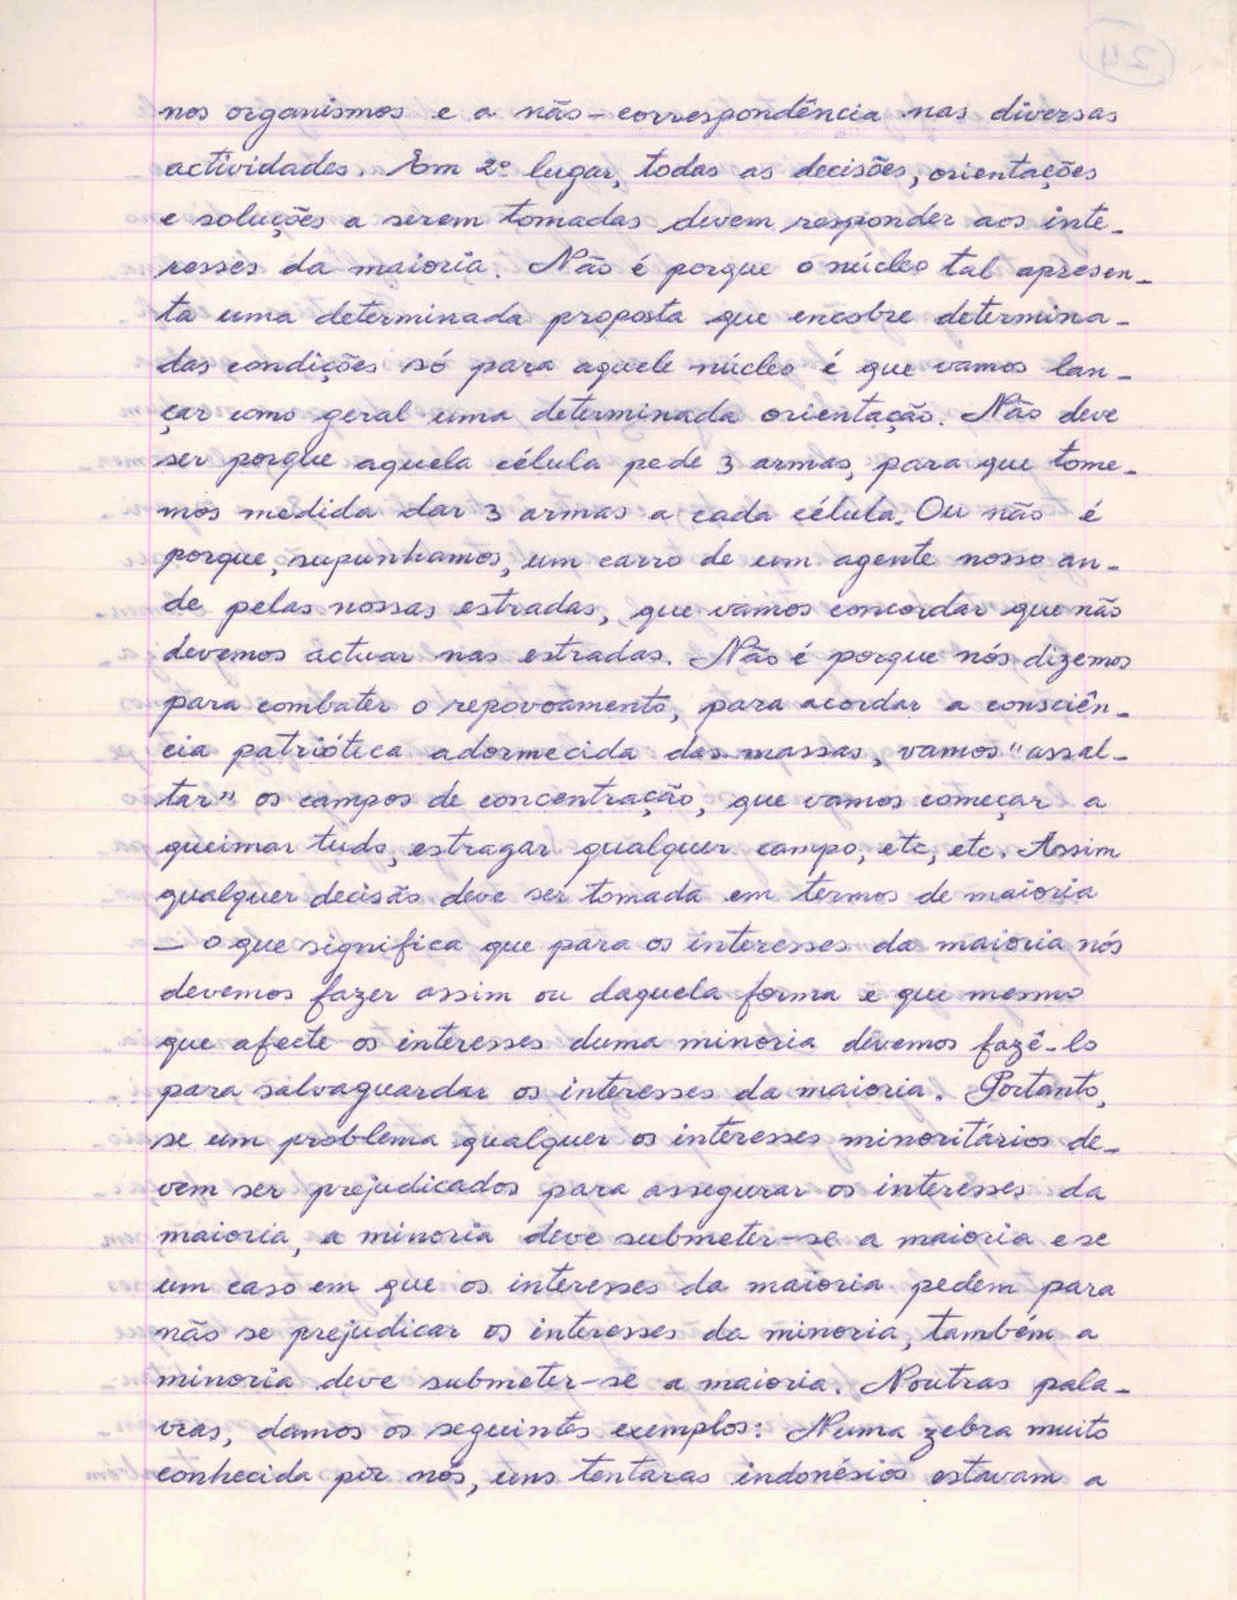 nos organismos e a não-correspondência nas diversas
actividades. Em 2º lugar, todas as decisões, orientações
e soluções a serem tomadas devem responder aos inte-
resses da maioria. Não é porque o núcleo tal apresen-
ta uma determinada proposta que encobre determina-
das condições só para aquele núcleo é que vamos lan-
çar como geral uma determinada orientação. Não deve
ser porque aquela célula pede 3 armas, para que tome-
mos medida dar 3 armas a cada célula. Ou não é
porque, supunhamos, um carro de um agente nosso an-
de pelas nossas estradas, que vamos concordar que não
devemos actuar nas estradas. Não é porque nós dizemos
para combater o repovoamento, para acordar a consciên-
cia patriótica adormecida das massas, vamos "assal-
tar" os campos de concentração, que vamos começar a
queimar tudo, estragar qualquer campo, etc, etc. Assim
qualquer decisão deve ser tomada em termos de maioria
— o que significa que para os interesses da maioria nós
devemos fazer assim ou daquela forma e que mesmo
que afecte os interesses duma minoria devemos fazê-lo
para salvaguardar os interesses da maioria. Portanto,
se um problema qualquer os interesses minoritários de-
vem ser prejudicados para assegurar os interesses da
maioria, a minoria deve submeter-se a maioria e se
um caso em que os interesses da maioria pedem para
não se prejudicar os interesses da minoria, também a
minoria deve submeter-se a maioria. Noutras pala-
vras, damos os seguintes exemplos: Numa zebra muito
conhecida por nós, uns tentaras indonésios estavam a